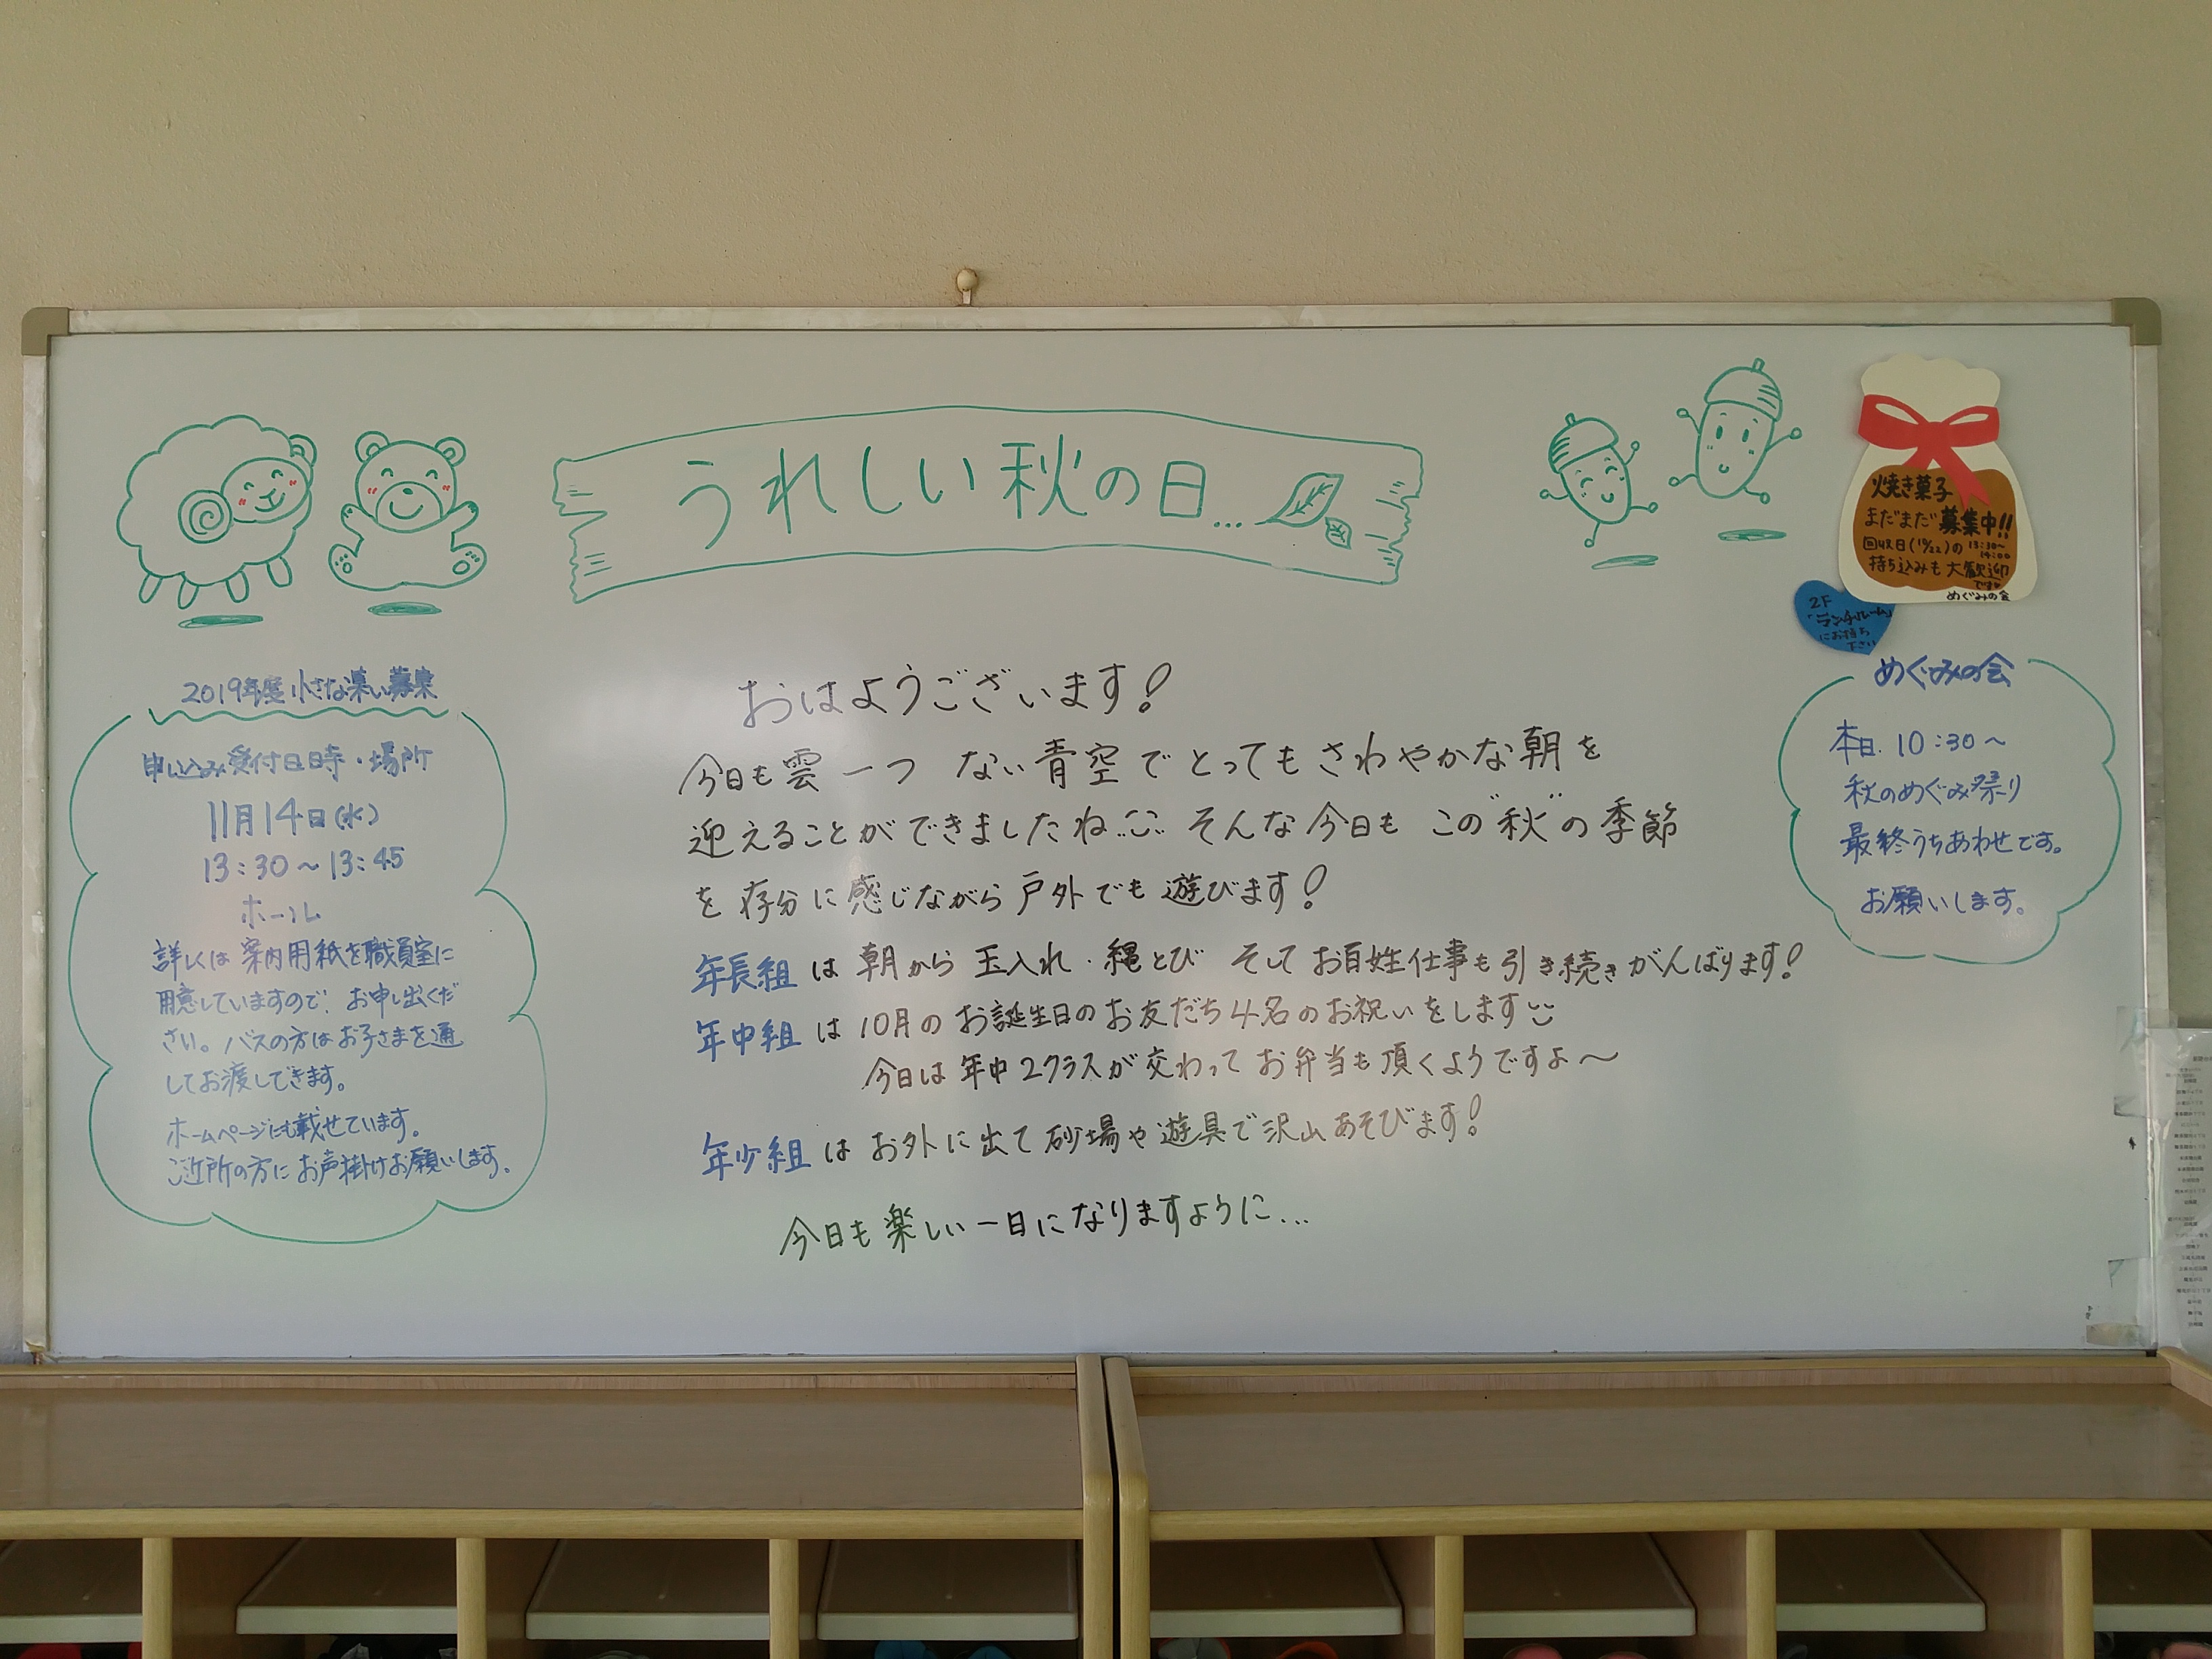 うれしい秋の日...
焼き菓子
まだまだ募集中!!
回収日(10/22)の13:30~14:00
持ち込みも大歓迎
です
めぐみの会
2F
「ランチルーム」
にお持ち
下さい
2019年度 小さな集い募集
申し込み受付日時・場所
11月14日(水)
13:30~13:45
ホール
詳しくは案内用紙を職員室に
用意していますので、お申し出くだ
さい。バスの方はお子さまを通
してお渡しできます。
ホームページにも載せています。
ご近所の方にお声掛けお願いします。
おはようございます!
今日も雲一つ ない青空でとってもさわやかな朝を
迎えることができましたね そんな今日も この"秋"の季節
を存分に感じながら戸外でも遊びます!
年長組は朝から玉入れ・縄とび そしてお百姓仕事も引き続きがんばります!
年中組は10月のお誕生日のお友だち4名のお祝いをします
今日は年中2クラスが交わってお弁当も頂くようですよ〜
年少組はお外に出て砂場や遊具で沢山あそびます!
今日も楽しい一日になりますように...
めぐみの会
本日 10:30~
秋のめぐみ祭り
最終うちあわせです。
お願いします。